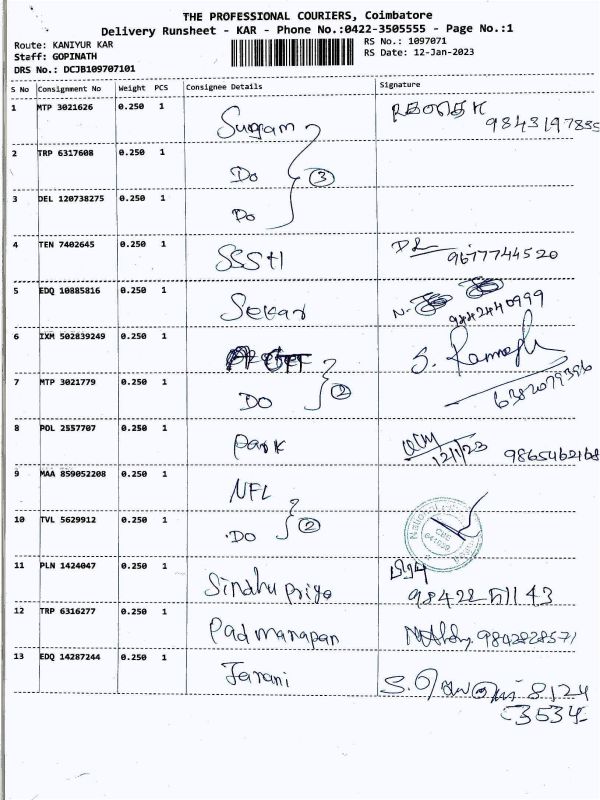 THE PROFESSIONAL COURIERS, Coimbatore
Delivery Runsheet - KAR - Phone No.:0422-3505555 - Page No.:1
Route: KANIYUR KAR
Staff: GOPINATH
DRS No.: DCJB109707101
RS No.: 1097071
RS Date: 12-Jan-2023
S No Consignment No Weight PCS Consignee Details Signature
1 MTP 3021626 0.250 1
2 TRP 6317608 0.250 1 Do 3
3 DEL 120738275 0.250 1 Do
4 TEN 7402645 0.250 1 SSSH 9677744520
5 EDQ 10885816 0.250 1 Sekar 9842440999
6 IXM 502839249 0.250 1 S. Ramesh
7 MTP 3021779 0.250 1 DO 2 6382079396
8 POL 2557707 0.250 1 Park 12/1/23 9865462168
9 MAA 859052208 0.250 1 NFL
10 TVL 5629912 0.250 1 Do 2
11 PLN 1424047 0.250 1 Sindhu priya
12 TRP 6316277 0.250 1 Padmanapan 9842828571
13 EDQ 14287244 0.250 1 Jarani 8124
3534